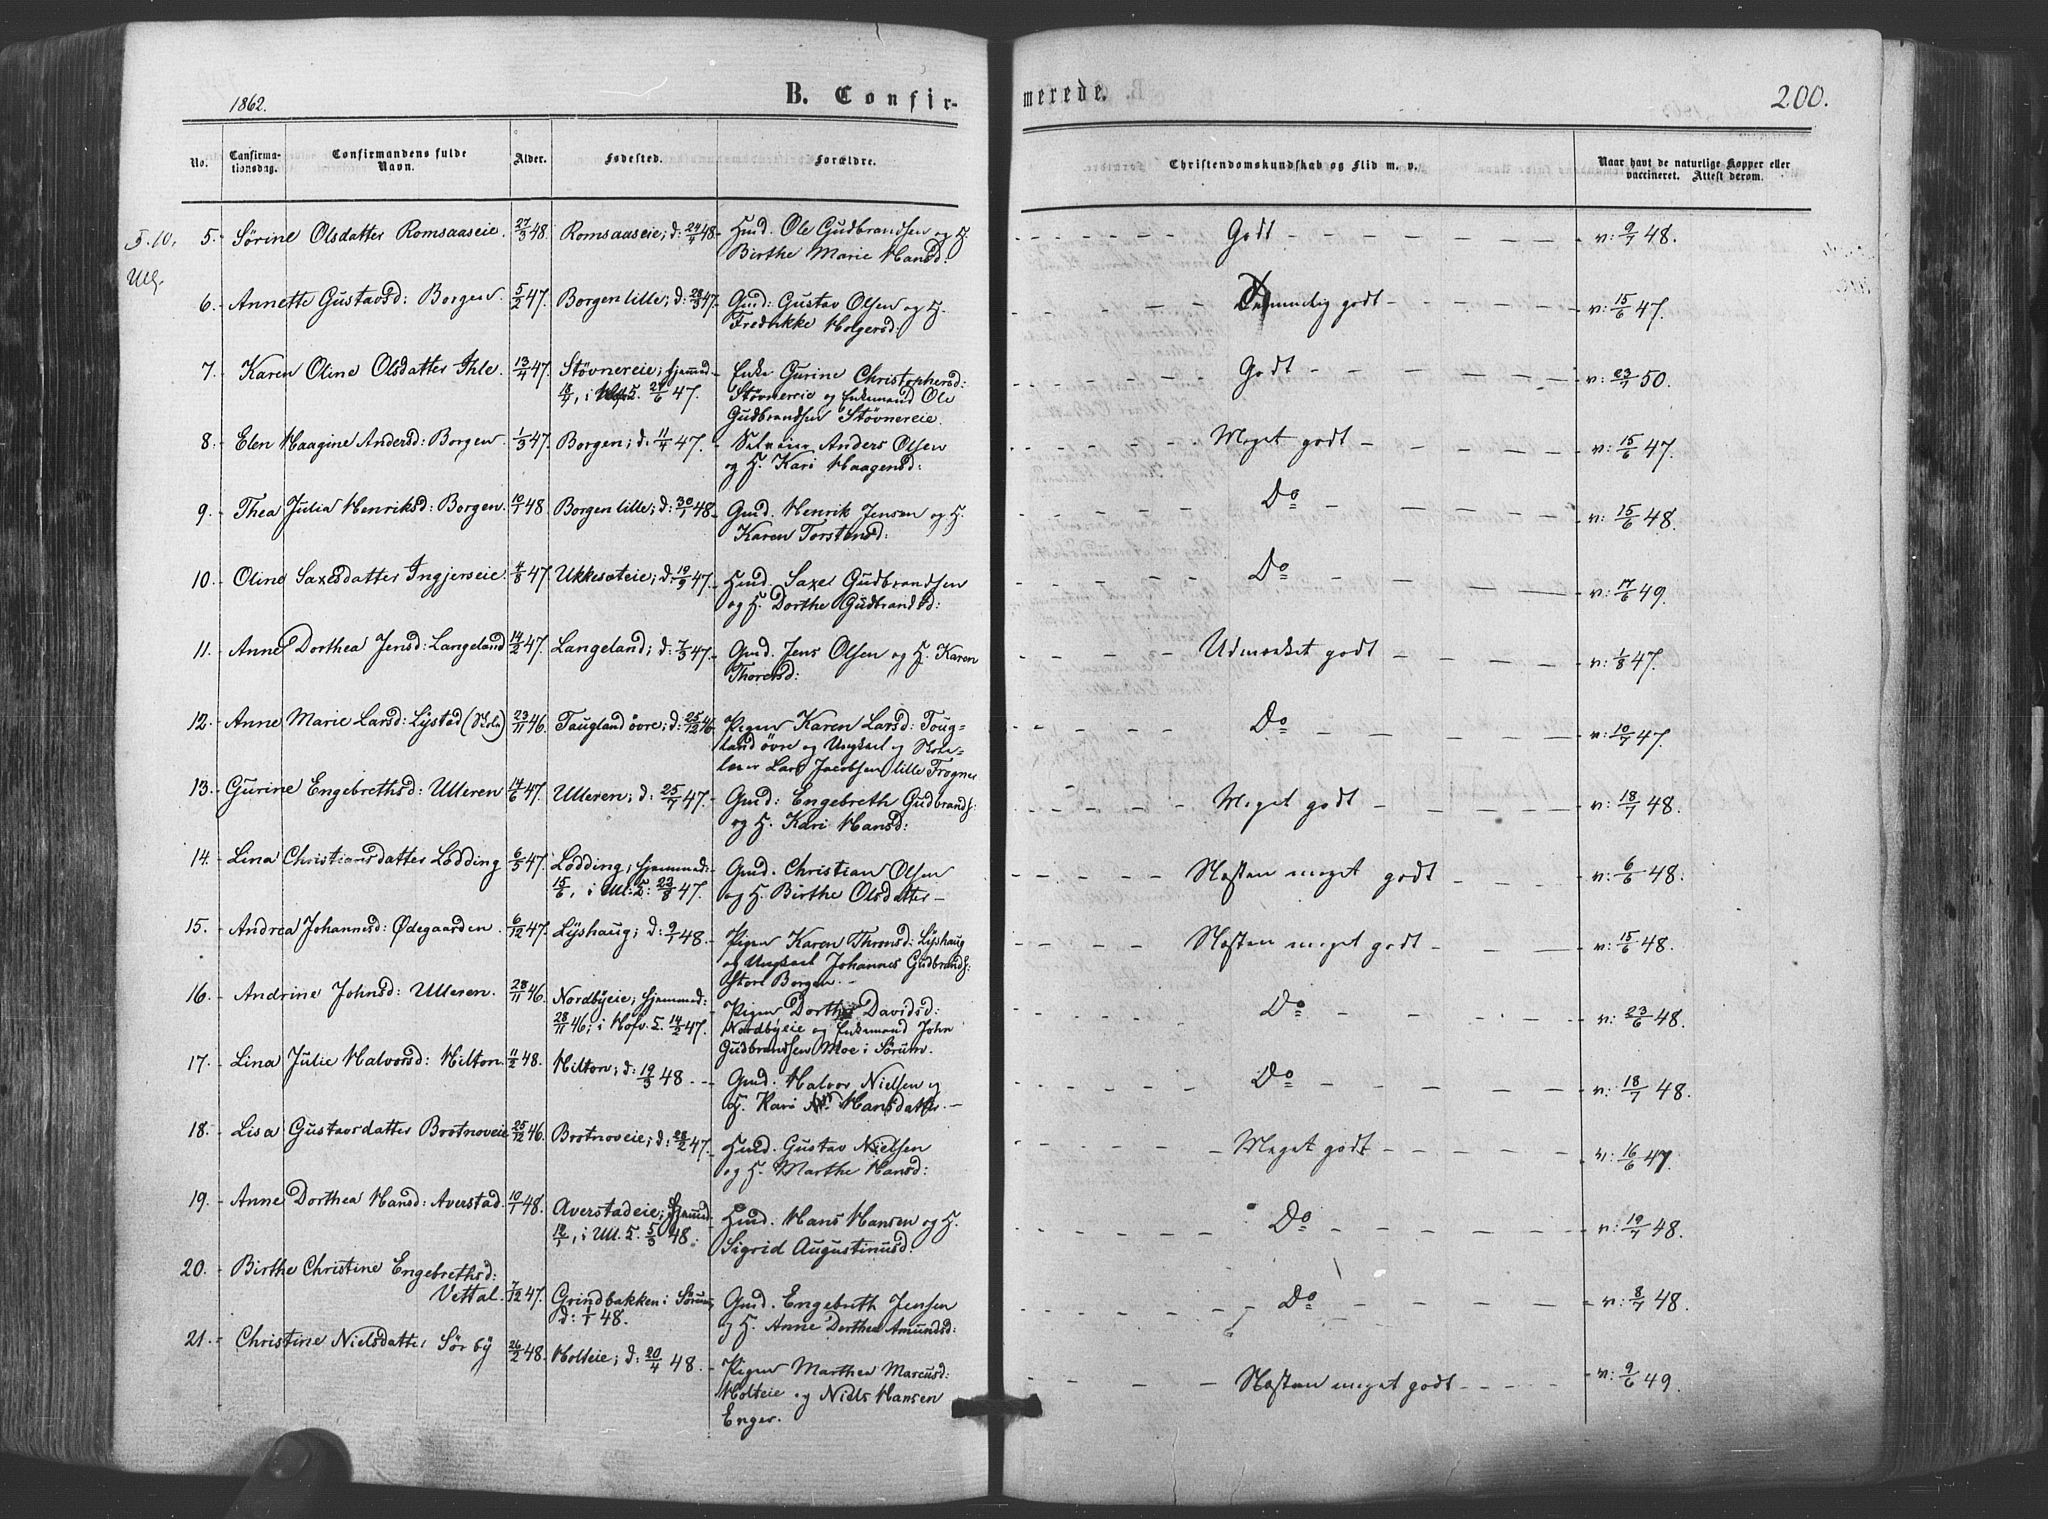 1862.
B. Confir-
merede.
200.
No.
Confirma-
tionsdag.
Confirmandens fulde
Navn.
Alder.
Fødested.
Forældre.
Christendomskundskab og Flid m. v.
Naar havt de naturlige Kopper eller
vaccineret. Attest derom.
5. 10.
Ull.
5. - Sørine Olsdatter Romsaaseie. 27/3 48. Romsaaseie; d: 24/4 48 - Husmd. Ole Gudbrandsen og H. Godt v: 9/7 48.
Birthe Marie Hansd:
6. - Annette Gustavsd: Borgen. 5/2 47. Borgen lille; d: 28/3 47. Gmd: Gustav Olsen og H. Temmelig godt v: 15/6 47.
Fredrikke Holgersd:
7. - Karen Oline Olsdatter Ihle. 13/4 47. Støvnereie; hjemmed - Enke Gurine Christophersd: Godt v: 23/7 50.
i 24/6 47. Støvnereie og Enkemand Ole
Gudbrandsen Støvnereie.
8. - Elen Haagine Andersd: Borgen 1/3 47. Borgen; d: 11/4 47. - Selveier Anders Olsen Meget godt v: 15/6 47.
og H. Kari Haagensd:
9. - Thea Julia Henriksd: Borgen. 10/1 48. Borgen lille; d: 30/1 48 - Gmd. Henrik Jensen og H. Do v: 15/6 48.
Karen Torstensd:
10. - Oline Saxesdatter Ingjerseie: 4/8 47. Ukkesteie; d: 19/9 47. - Husmd. Saxe Gudbrandsen Do v: 17/6 49.
og H. Dorthe Gudbrandsd:
11. - Anne Dorthea Jensd: Langeland 14/2 47. Langeland; d: 7/3 47. - Gmd. Jens Olsen og H. Karen Udmærket godt v: 1/8 47.
Thoresd:
12. - Anne Marie Larsd: Lystad 23/11 46. Taugland övre; d: 25/12 46. Pigen Karen Larsd: Toug- Do v: 10/7 47.
land övre og Ungkarl og Skole-
lærer Lars Jacobsen lille Frogner
13. - Gurine Engebrethsd: Ulleren 14/6 47. Ulleren; d: 25/7 47. - Gmd: Engebreth Gudbrands: Meget godt v: 18/7 48.
og H. Kari Hansd:
14. - Lina Christiansdatter Lodding 6/5 47. Lodding; hjemmed: Gmd. Christian Olsen Næsten meget godt v: 6/6 48.
15/6, i Ull: K. 22/8 47. og H. Birthe Olsdatter -
15. - Andrea Johannesd: Ødegaarden 6/12 47. Lyshaug; d: 9/1 48. - Pigen Karen Thronsd: Lyshaug Næsten meget godt v: 15/6 48.
og Ungkarl Johannes Gudbrands:
Store Borgen. -
16. - Andrine Johnsd: Ulleren. 28/11 46. Nordbyeie; hjemmed: - Pigen Dorthe Davidsd: Do v: 23/6 48.
28/11 46; i Hofv. K. 14/2 47. Nordbyeie og Enkemand John
Gudbrandsen Moe i Sørum.
17. - Lina Julie Halvorsd: Hilton. 11/2 48. Hilton; d: 19/3 48 - Gmd. Halvor Nielsen og Do v: 18/7 48.
H. Kari Hansdatter. -
18. - Lisa Gustavsdatter Brotnoveie 25/12 46. Brotnoveie; d: 28/2 47. Husmd. Gustav Nielsen Meget godt v: 16/6 47.
og H. Marthe Hansd:
19. - Anne Dorthea Hansd: Averstad. 10/1 48. Averstadeie; hjemmed. Husmd. Hans Hansen og H. Do v: 19/7 48.
i Ull. K. 5/3 48. Sigrid Augustinusd:
20. - Birthe Christine Engebrethsd:
Vettal. 7/12 47. Grindbakken i Sørum; Gmd. Engebreth Jensen Do v: 8/7 48.
d: 1/1 48. og H. Anne Dorthea Amundsd:
21. - Christine Nielsdatter Sörby 26/2 48. Holteie; d: 20/4 48. - Pigen Marthea Marcusd: Næsten meget godt v: 9/6 49.
Holteie og Niels Hansen
Enger.